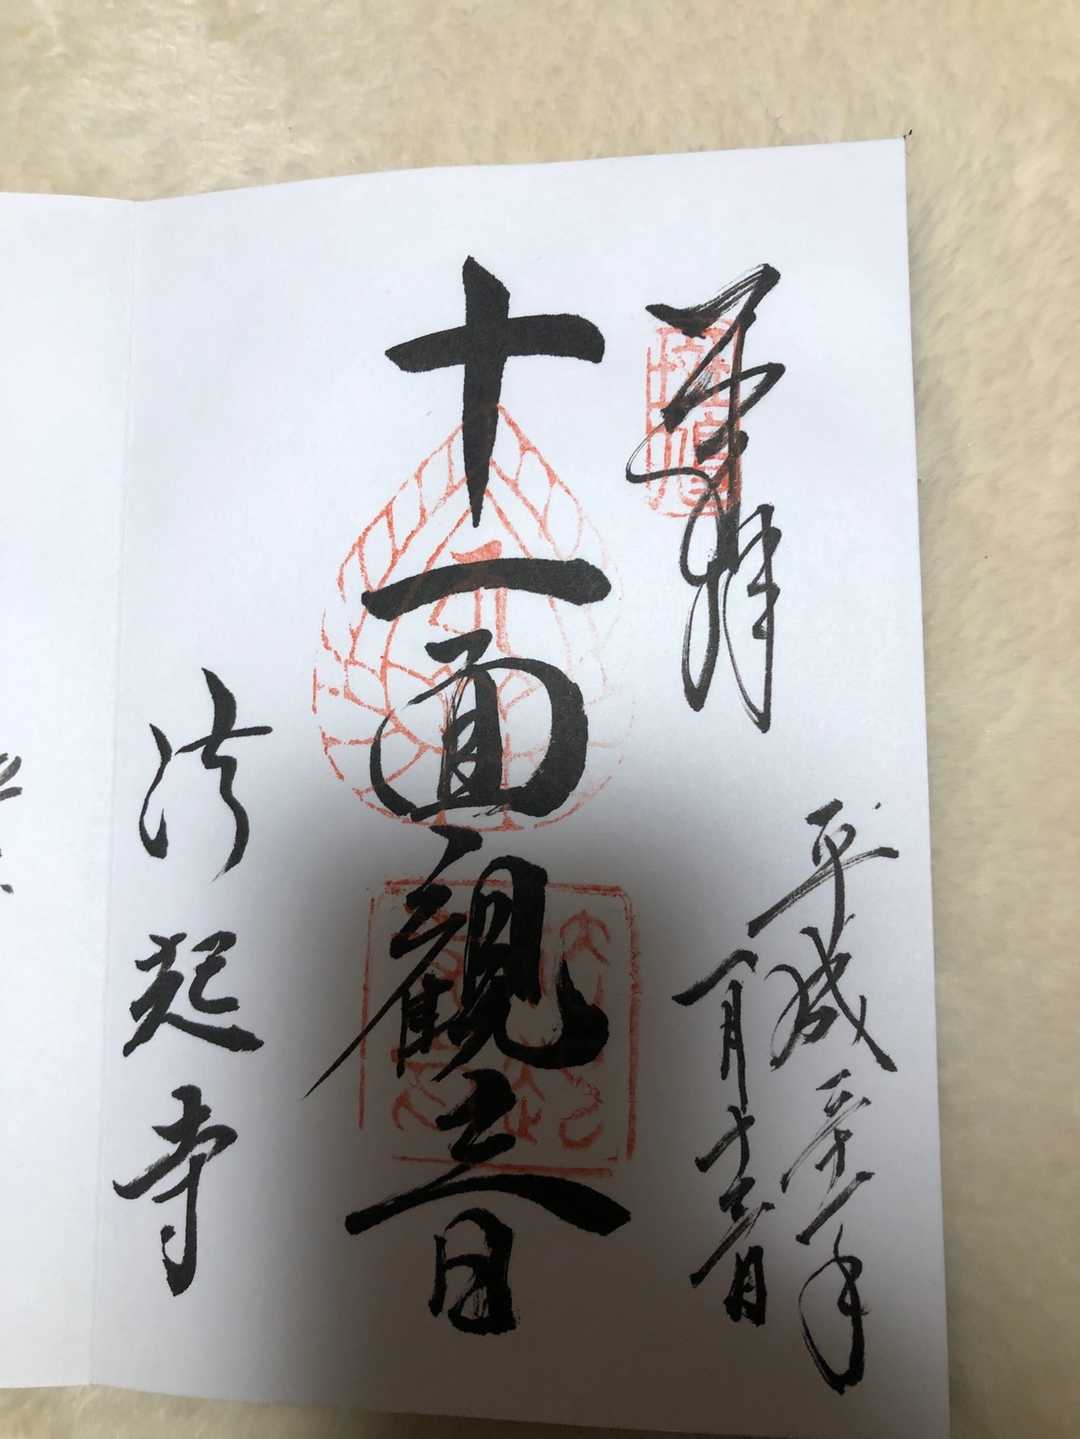 奉拝
平成三十一年
一月十
十一面観音
法起寺